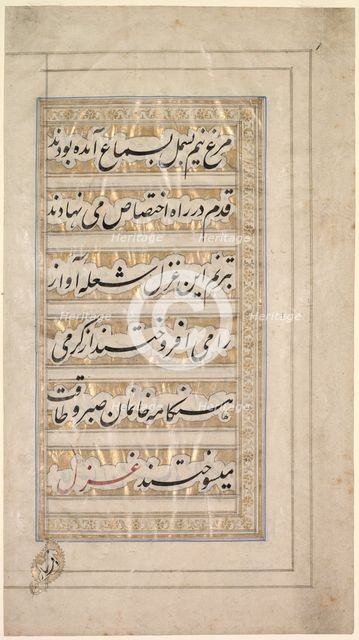 مرغ نیم بسمل بسماع آمده بودند
قدم در راه اختصاص می نهادند
بترنم این غزل شعله آواز
را می افروختند از گرمی
هنگامه خانمان صبر و طاقت
میسوختند غزل
Heritage Heritage
Heritage Heritage
Heritage Heritage